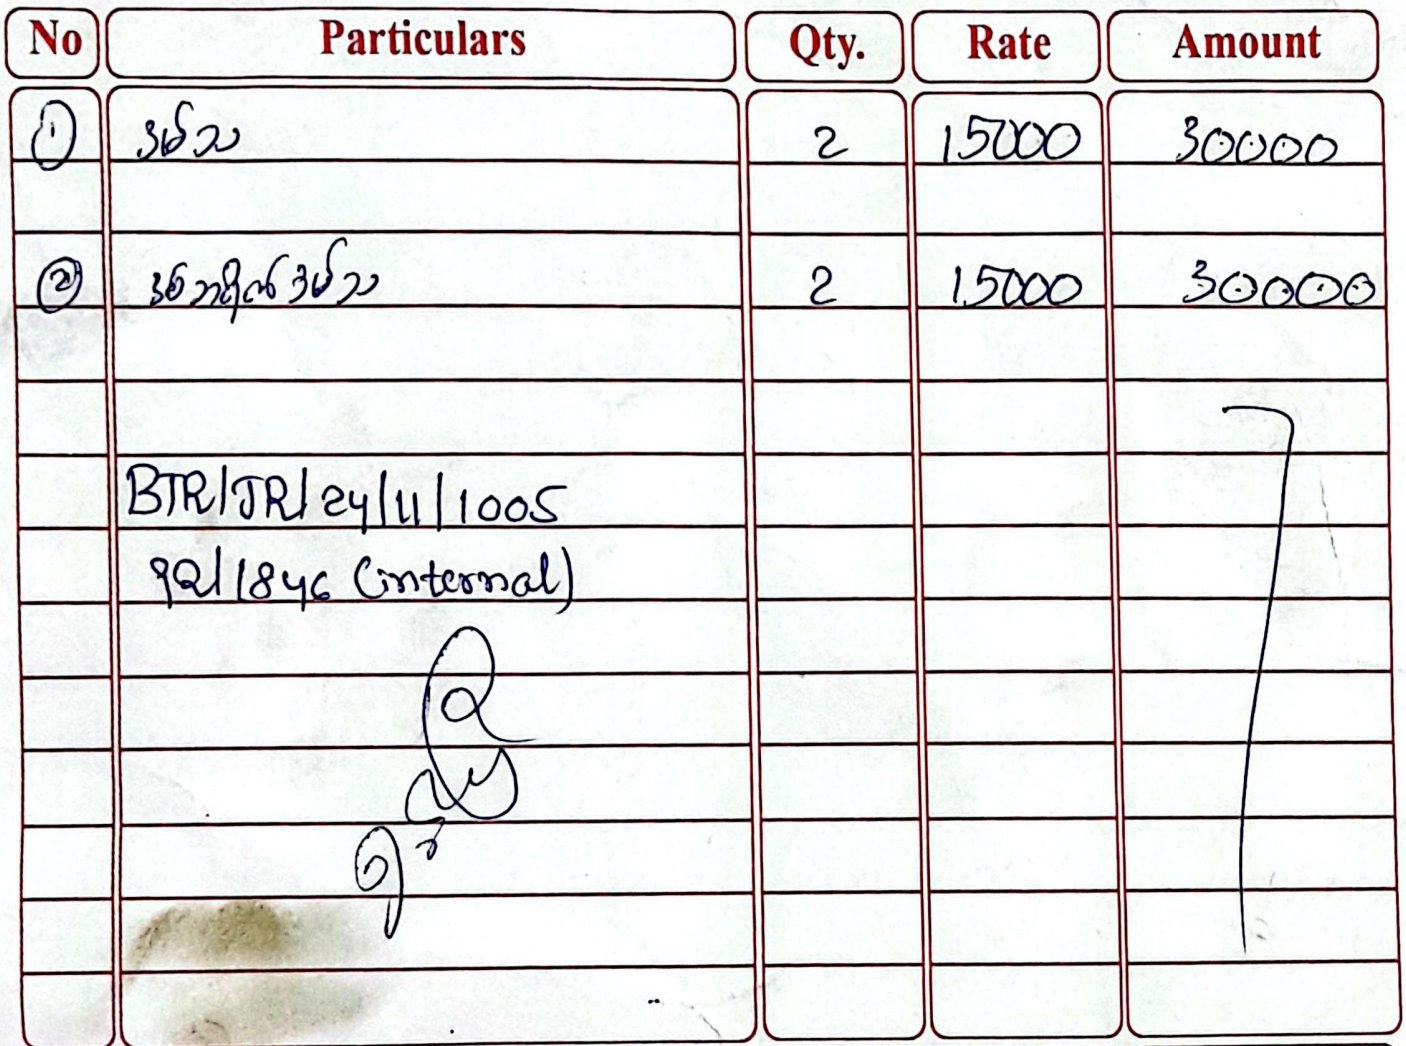 No Particulars Qty. Rate Amount
① ဒမ်သ 2 15000 30000
② 2 15000 30000
BTR/JR/24/11/1005
9Q/1846 (internal)